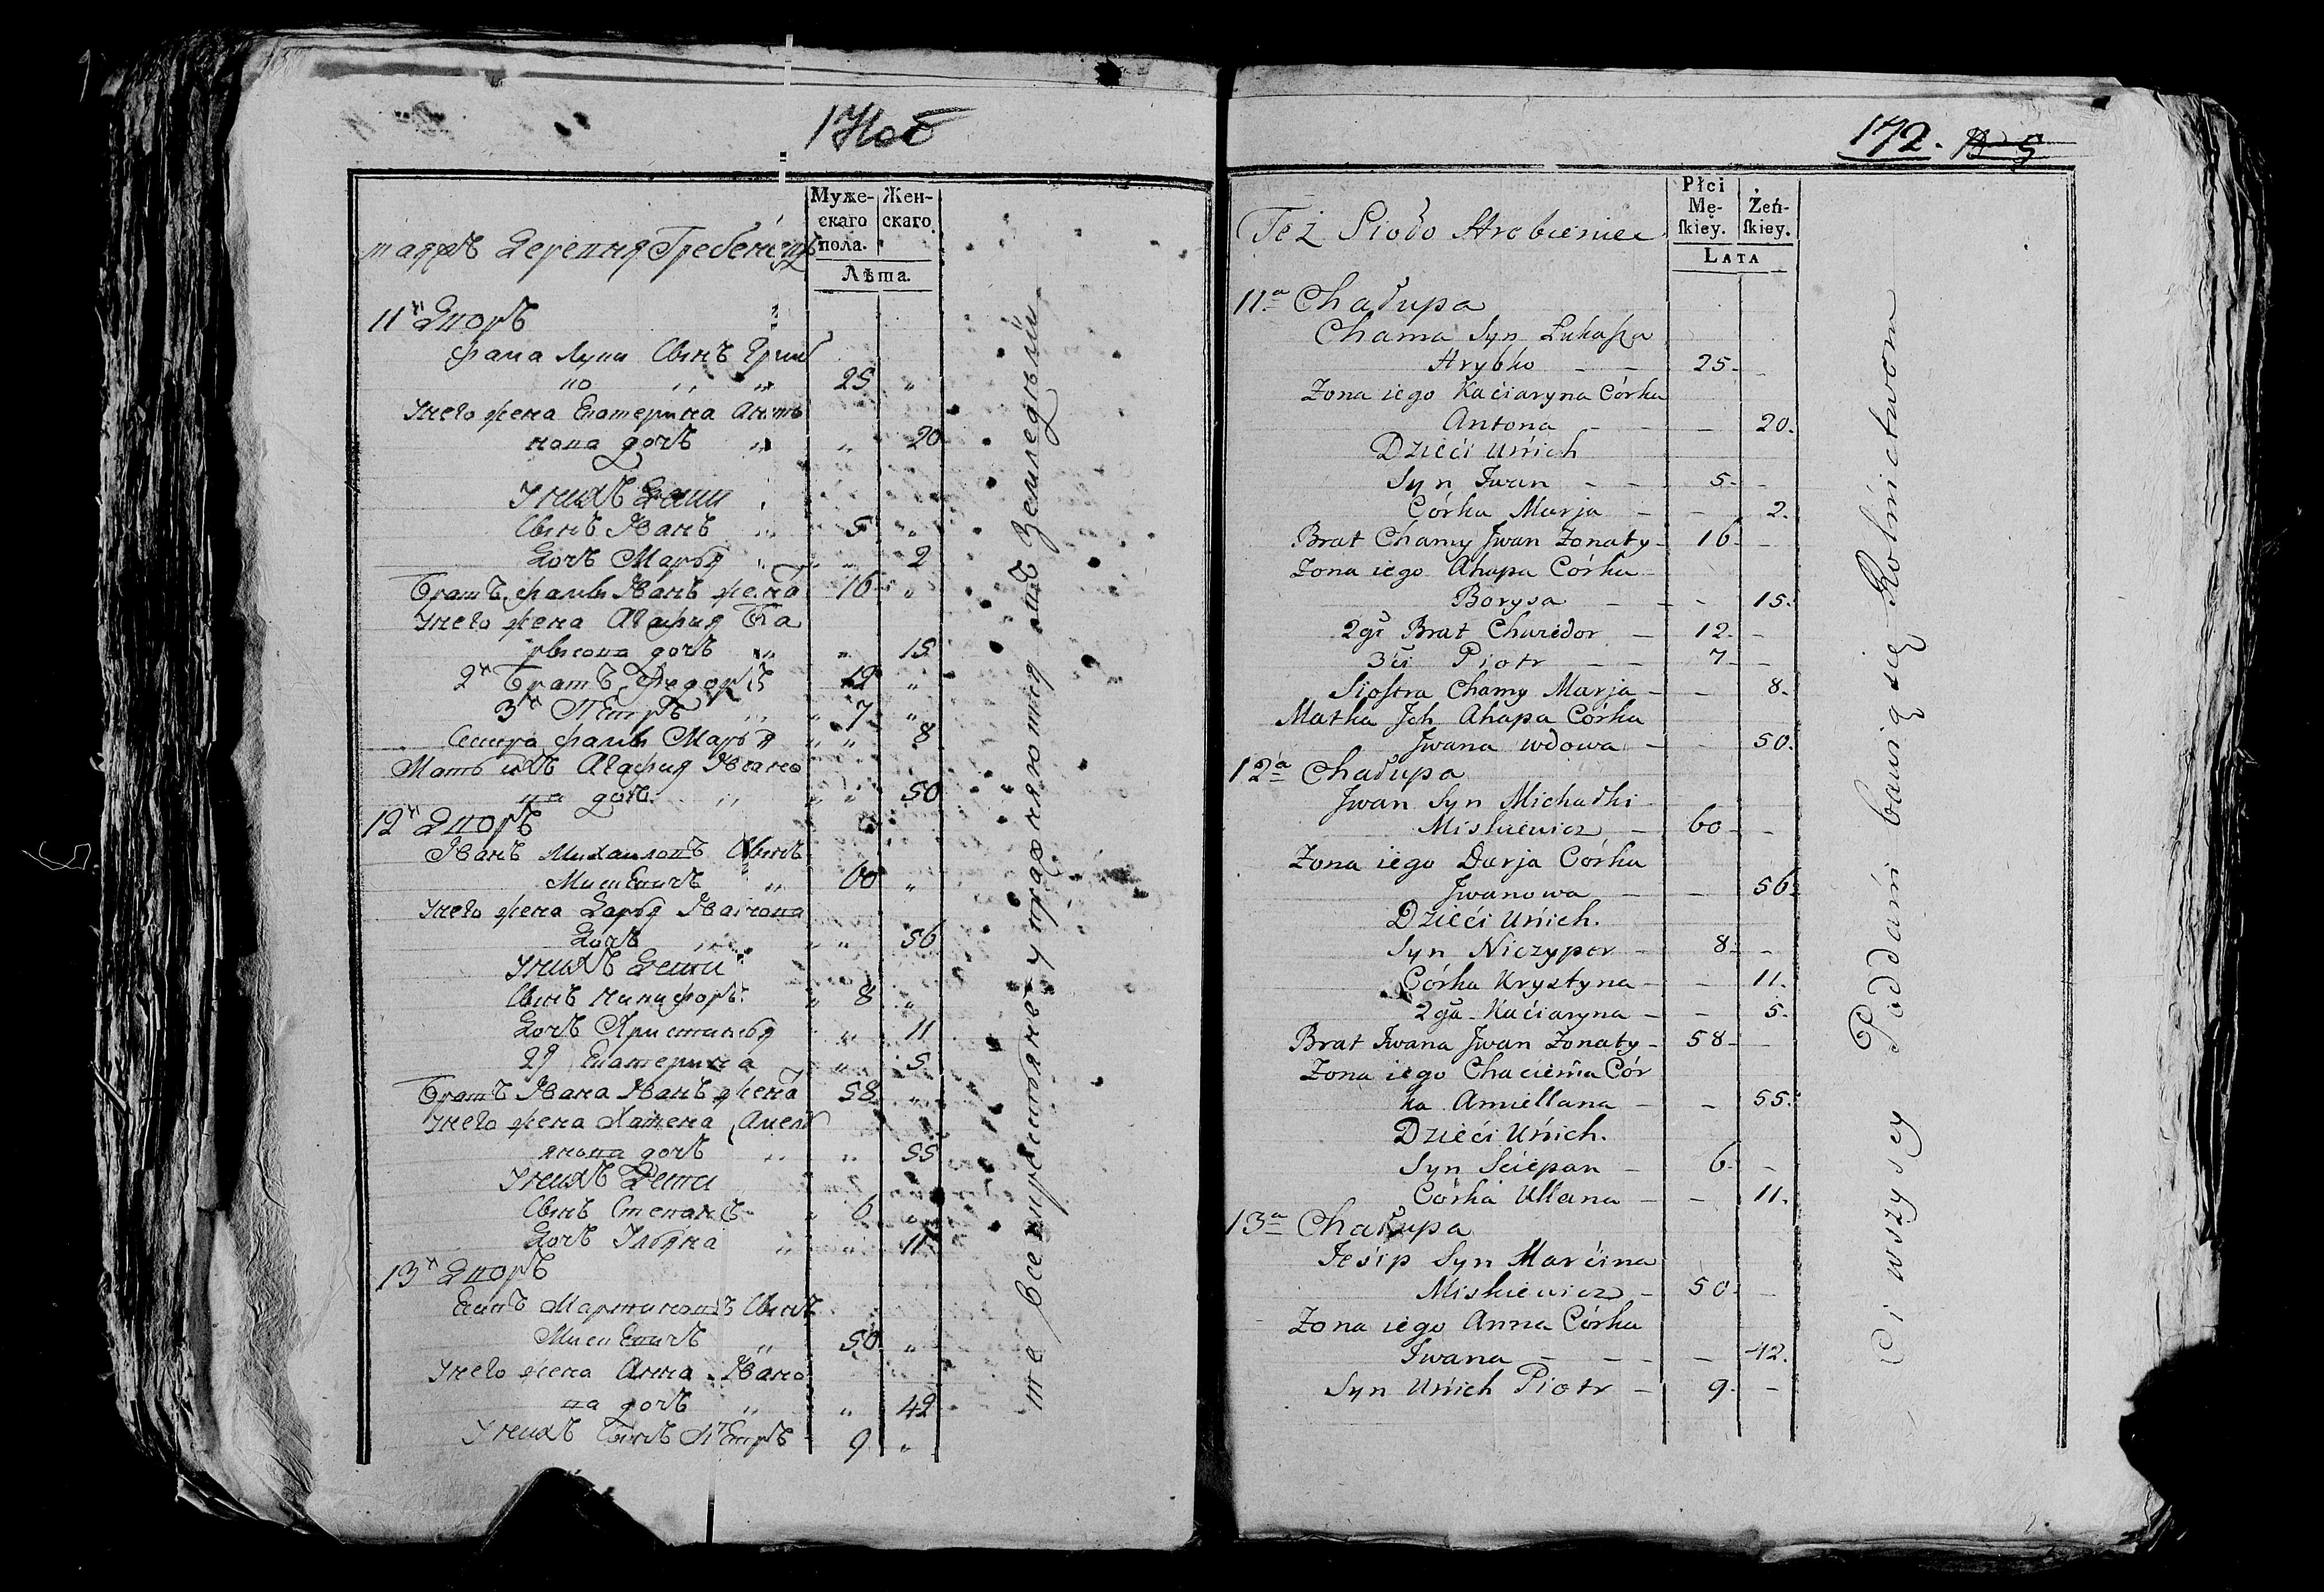 Муже-
скаго
пола.
Жен-
скаго
Лѣта.
таяжъ Деревня Гребенецъ
11й Дворъ
Фама Луки Сынъ Гриб
ко 25
У него жена Екатерина Анто
нова дочь 20
У нихъ Дети
Сынъ Иванъ 5
Дочь Марья 2
Братъ Фамы Иванъ жена 16
У него жена Агафия Ба
рысова дочь 15
2й Братъ Федоръ 12
3й Петръ 7
Сестра Фамы Марья 8
Мать ихъ Агафия Ивано
ва дочь 50
12й Дворъ
Иванъ Михаиловъ Сынъ
Мискевичъ 60
У него жена Дарья Иванова
Дочь 56
У нихъ Дети
Сынъ Никифоръ 8
Дочь Христинья 11
2я Екатерина 5
Братъ Ивана Иванъ жена 58
У него жена Хатена Амел
янова дочь 55
У нихъ Дети
Сынъ Степанъ 6
Дочь Ульяна 11
13й Дворъ
Есипъ Мартиновъ Сынъ
Мискевичъ 50
У него жена Анна Ивано
ва дочь 42
У нихъ Сынъ Петръ 9
Все крестьяне упражняются въ Земледелии
172.
Płci
Mę-
ſkiey.
Żeń-
ſkiey.
LATA
Też Sioło Hrebieniec
11a Chałupa
Chama Syn Łukaſza
Hrybko – – 25 –
Zona iego Kaciaryna Córka
Antona – – – 20.
Dzieći Unich
Syn Iwan – – 5 –
Córka Marja – – 2.
Brat Chamy Jwan Zonaty – 16 –
Zona iego Ahapa Córka
Borysa – – 15.
2gi Brat Chwiedor – 12 –
3ci Piotr – – 7 –
Sioſtra Chamy Marja – – 8.
Matka Jch Ahapa Córka
Jwana wdowa – – 50.
12a Chałupa
Jwan Syn Michałki
Miskiewicz – 60 –
Zona iego Darja Córka
Jwanowa – – 56.
Dzieći Unich.
Syn Niczyper – 8 –
Córka Krystyna – – 11.
2ga Kaciaryna – – 5.
Brat Iwana Jwan Zonaty – 58 –
Zona iego Chacienia Cór
ka Amiellana – – 55.
Dzieći Unich.
Syn Sciepan – 6 –
Córka Ullana – – 11.
13a Chałupa
Iesip Syn Marćina
Miskiewicz – 50 –
Zona iego Anna Córka
Iwana – – – 42.
Syn Unich Piotr – 9 –
Ci wszyscy Poddani bawią się Rolnictwem